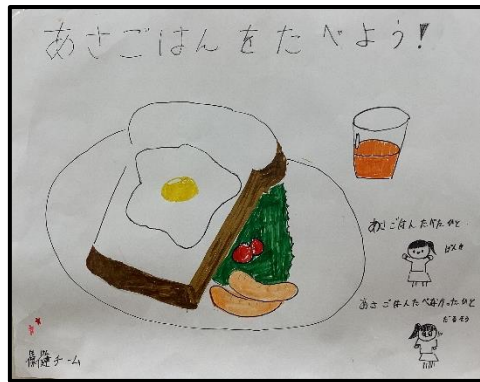 あさごはんをたべよう!
あさごはんたべたひと
あさごはんたべなかったひと
だるそう
保健チーム